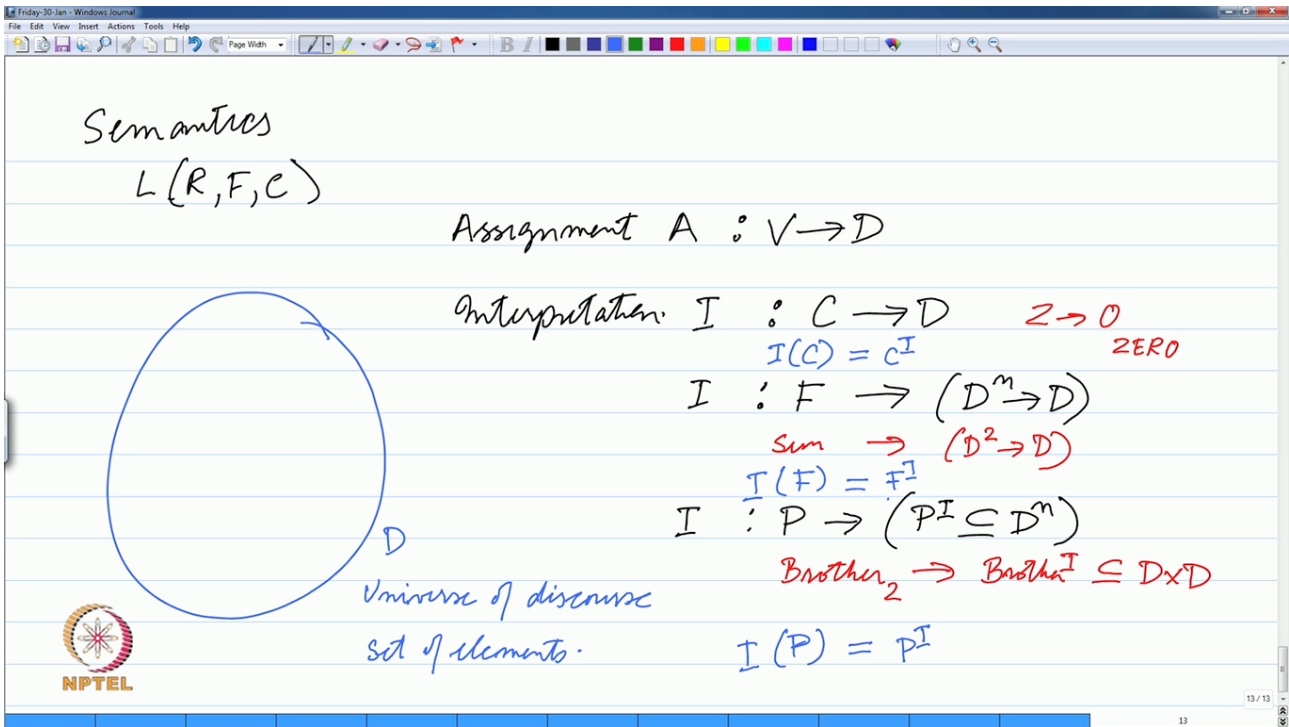 Friday-30-Jan - Windows Journal
File Edit View Insert Actions Tools Help
Page Width
B I
Semantics
L (R, F, C)
Assignment A : V → D
Interpretation. I : C → D Z → 0
ZERO
I(C) = C^I
I : F → (D^n → D)
Sum → (D^2 → D)
I(F) = F^I
I : P → (P^I ⊆ D^n)
D
Brother_2 → Brother^I ⊆ D×D
Universe of discourse
set of elements.
I (P) = P^I
NPTEL
13 / 13
13